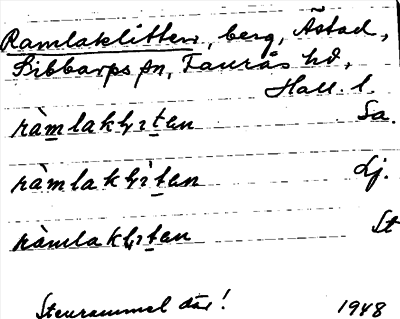 Ramlaklitten, berg, Åstad,
Sibbarps sn, Faurås hd,
Hall. l.
ràmlaklıtan Sa.
ràmlaklìtan Lj.
ràmlaklıtan St
Stenrammel där! 1948